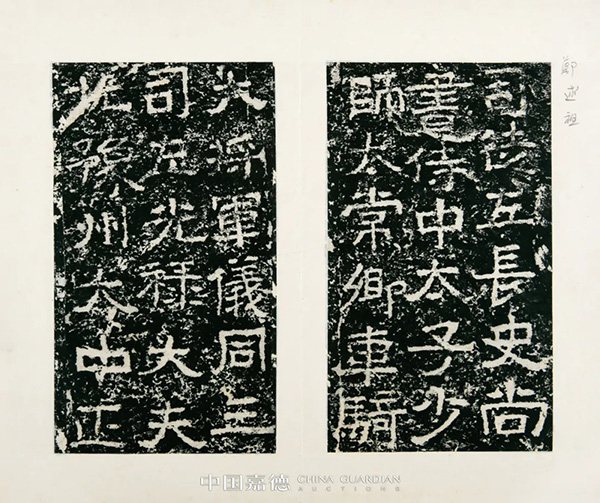 鄭述祖
司徒左長史尚
書侍中太子少
師太常卿車騎
大將軍儀同三
司右光祿大夫
北豫州大中正
中国嘉德 CHINA GUARDIAN
AUCTIONS